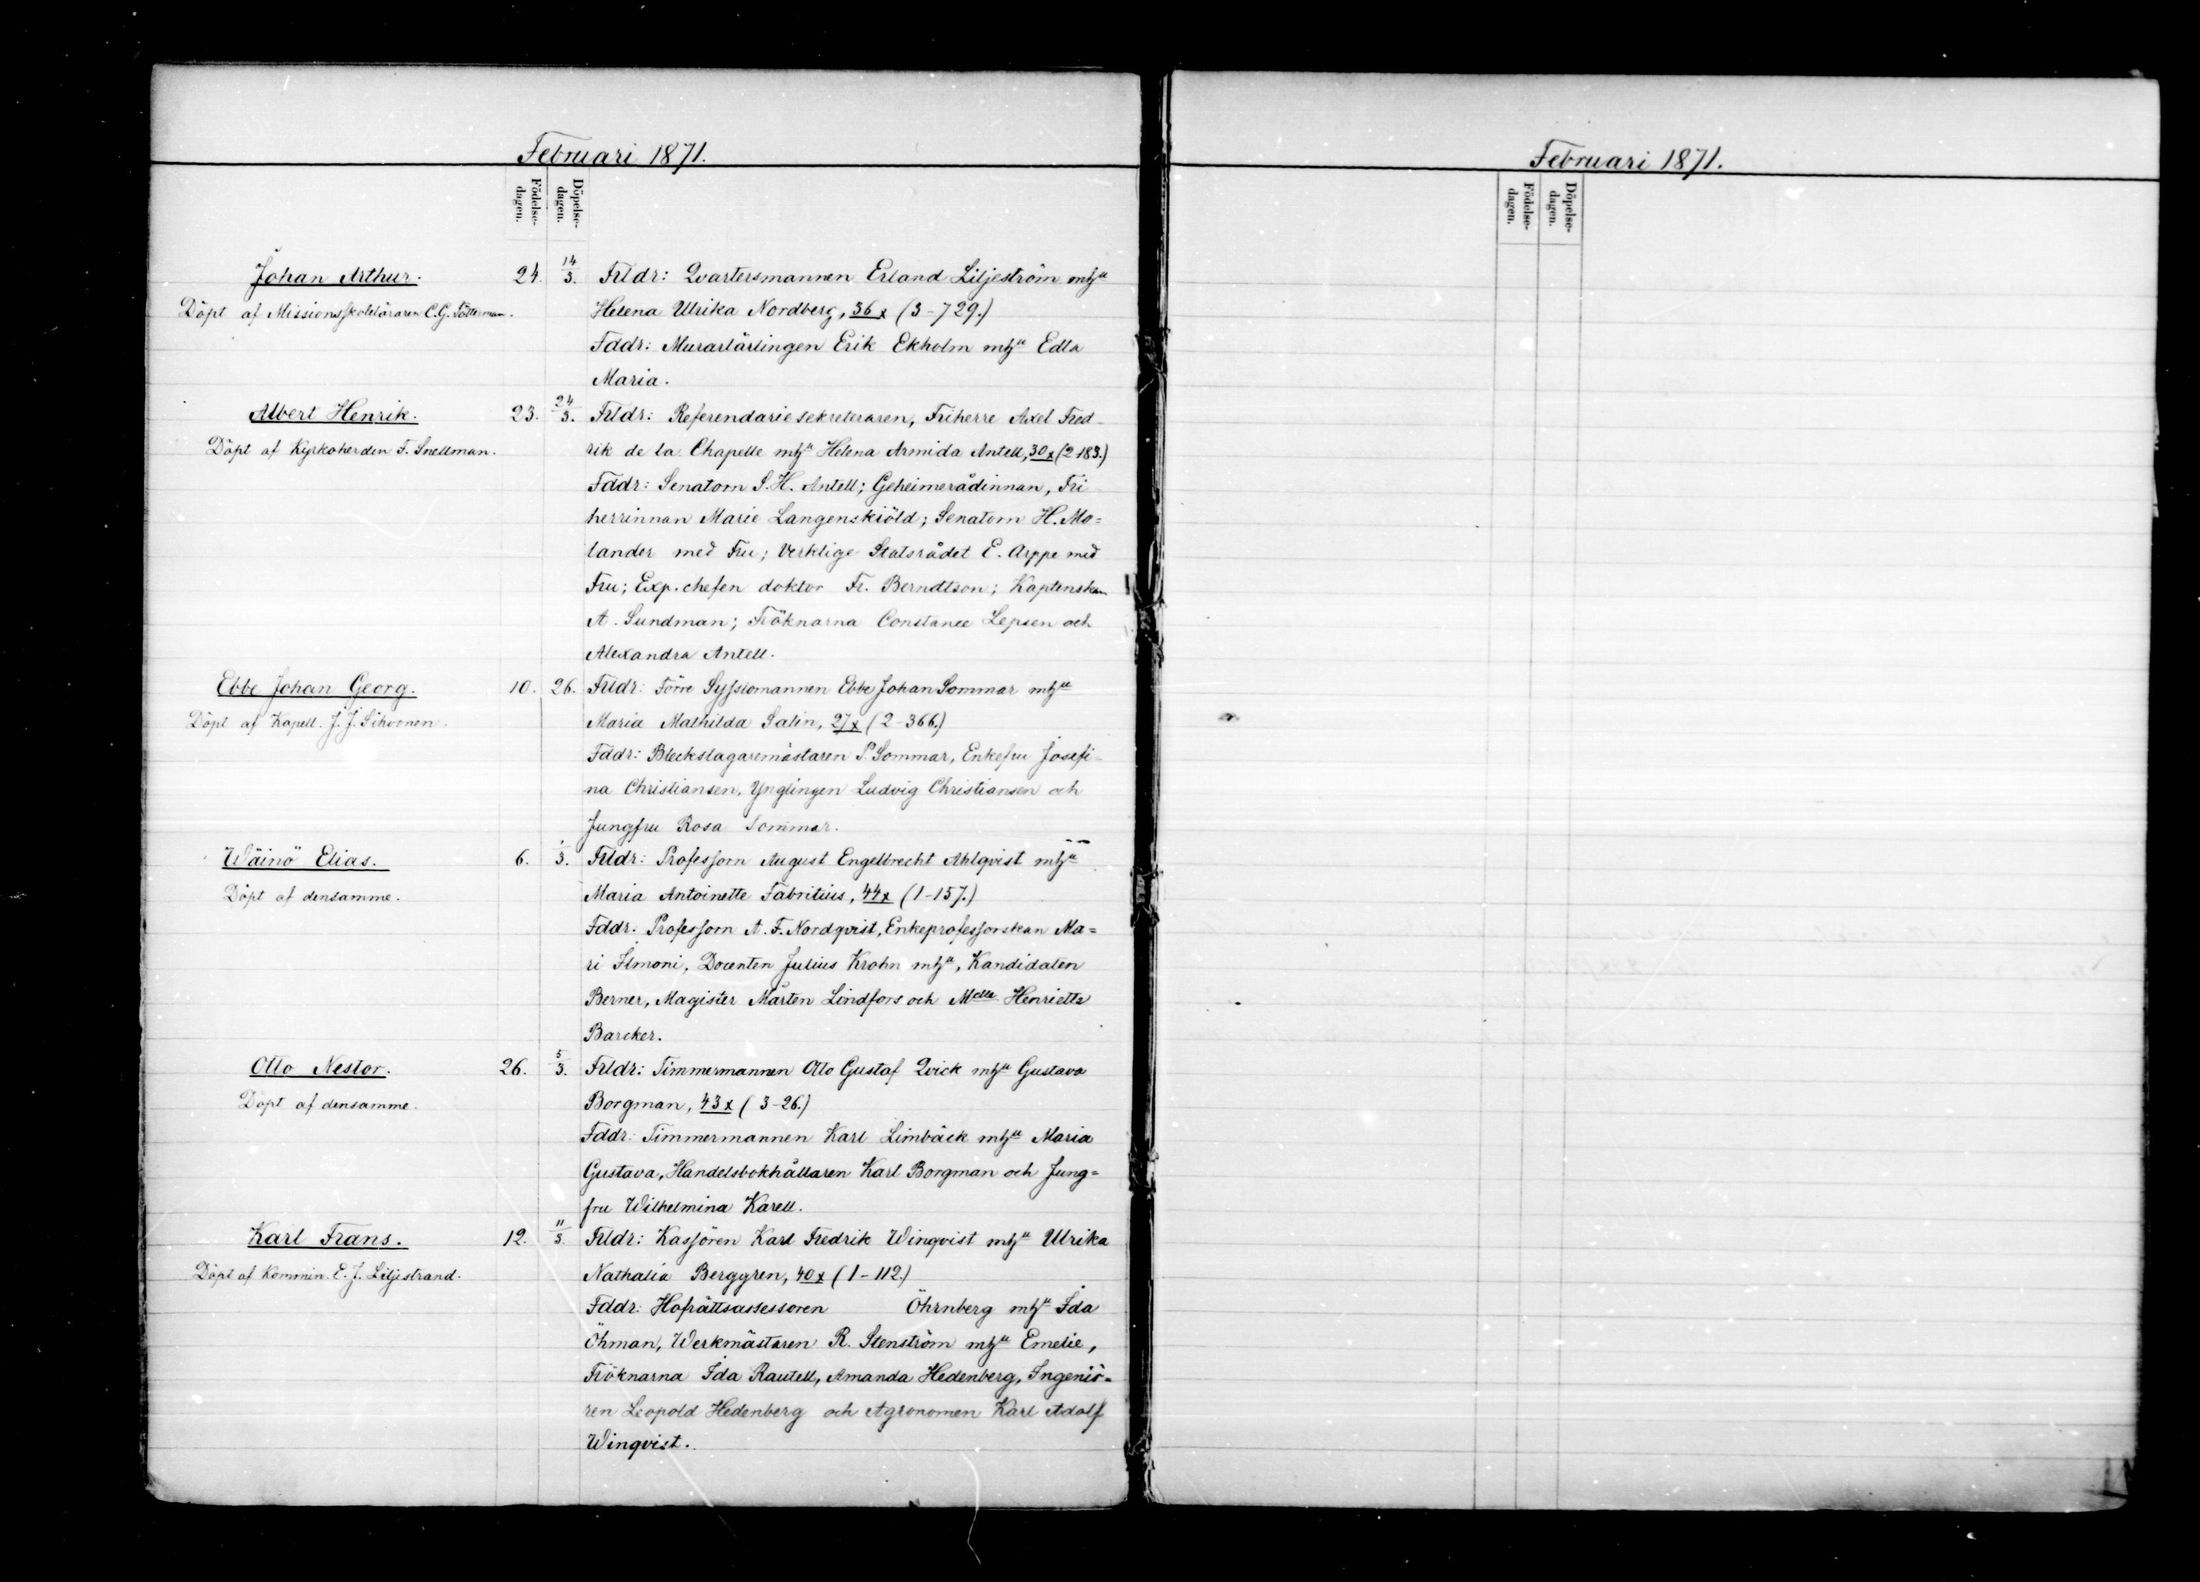 Februari 1871.
Födelse-
dagen.
Döpelse-
dagen.
Johan Arthur. 24. 14/3. Frldr: Qvartersmannen Erland Liljeström mhu
Döpt af Missionsskoleläraren C.G. Tötterman. Helena Ulrika Nordberg, 36x (3-729.)
Fddr: Murarlärlingen Erik Ekholm mhu Edla
Maria.
Albert Henrik. 23. 24/3. Frldr: Referendariesekreteraren, Friherre Axel Fred-
Döpt af Kyrkoherden F. Snellman. rik de la Chapelle mhu Helena Armida Antell, 30x (2-183.)
Fddr: Senatorn S.H. Antell; Geheimerådinnan, Fri
herrinnan Marie Langenskiöld; Senatorn H. Mo=
lander med Fru; Verklige Statsrådet E. Arppe med
Fru; Exp.chefen doktor Fr. Berndtson; Kaptenskan
A. Sundman; Fröknarna Constance Lepsen och
Alexandra Antell.
Ebbe Johan Georg. 10. 26. Frldr: Förre Sysslomannen Ebbe Johan Sommar mhu
Döpt af Kapell. J.J. Sihvonen. Maria Mathilda Salin, 27x (2-366.)
Fddr: Bleckslagaremästaren P. Sommar, Enkefru Josefi-
na Christiansen, Ynglingen Ludvig Christiansen och
Jungfru Rosa Sommar.
Wäinö Elias. 6. 1/3. Frldr: Professorn August Engelbrecht Ahlqvist mhu
Döpt af densamme. Maria Antoinette Fabritius, 44x (1-157.)
Fddr: Professorn A. F. Nordqvist, Enkeprofessorskan Ma=
ri Ilmoni, Docenten Julius Krohn mhu, Kandidaten
Berner, Magister Mårten Lindfors och Mlle Henriette
Barcker.
Otto Nestor. 26. 5/3. Frldr: Timmermannen Otto Gustaf Qvick mhu Gustava
Döpt af densamme. Borgman, 43x (3-26.)
Fddr: Timmermannen Karl Limbäck mhu Maria
Gustava, Handelsbokhållaren Karl Borgman och Jung=
fru Wilhelmina Karell.
Karl Frans. 12. 11/3. Frldr: Kassören Karl Fredrik Winqvist mhu Ulrika
Döpt af Kommin. E. J. Liljestrand. Nathalia Berggren, 40x (1-112.)
Fddr: Hofrättsassessoren Öhrnberg mhu Ida
Öhman, Werkmästaren R. Stenström mhu Emelie,
Fröknarna Ida Rautell, Amanda Hedenberg, Ingeniö=
ren Leopold Hedenberg och Agronomen Karl Adolf
Winqvist.
Februari 1871.
Födelse-
dagen.
Döpelse-
dagen.